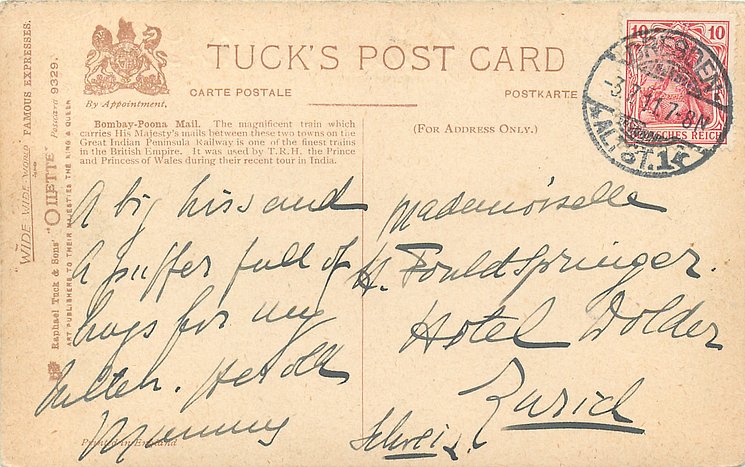 TUCK'S POST CARD
By Appointment.
CARTE POSTALE
POSTKARTE
"WIDE WIDE WORLD" FAMOUS EXPRESSES.
Raphael Tuck & Sons' "OILETTE" Postcard 9329.
ART PUBLISHERS TO THEIR MAJESTIES THE KING & QUEEN
Bombay-Poona Mail. The magnificent train which
carries His Majesty's mails between these two towns on the
Great Indian Peninsula Railway is one of the finest trains
in the British Empire. It was used by T.R.H. the Prince
and Princess of Wales during their recent tour in India.
(For Address Only.)
A big kiss and
a puffer full of
hugs for my
old
Mummy
Mademoiselle
H. Fould Springer.
Hotel Dolder
Zurich
Schweiz.
Printed in England
10 10
DEUTSCHES REICH
DRESDEN
-3.7.11.7-8N.
ALTST.1k